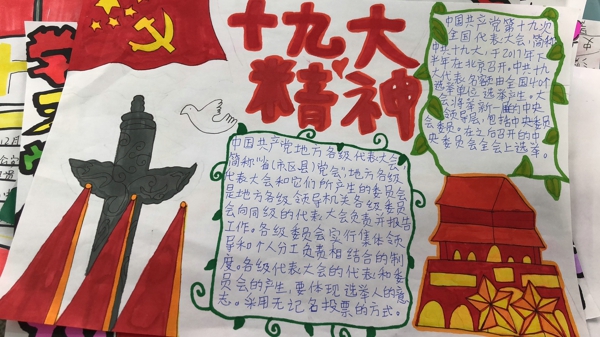 十九大
精神
中国共产党第十九次
全国代表大会,简称
中共十九大,于2017年下
半年在北京召开。中共十
九大代表名额由全国40个
选举单位选举产生。大
会将革新一届的中央
领导层,包括中央委员
会委员。在之后召开的中
央委员会全会上选举。
中国共产党地方各级代表大会,
简称"省(市区县)党会"地方各级
代表大会和它们所产生的委员会
是地方各级领导机关各级委员
会向同级的代表大会负责并报告
工作。各级委员会实行集体领
导和个人分工负责相结合的制
度。各级代表大会的代表和委
员会的产生,要体现选举人的意
志。采用无记名投票的方式。